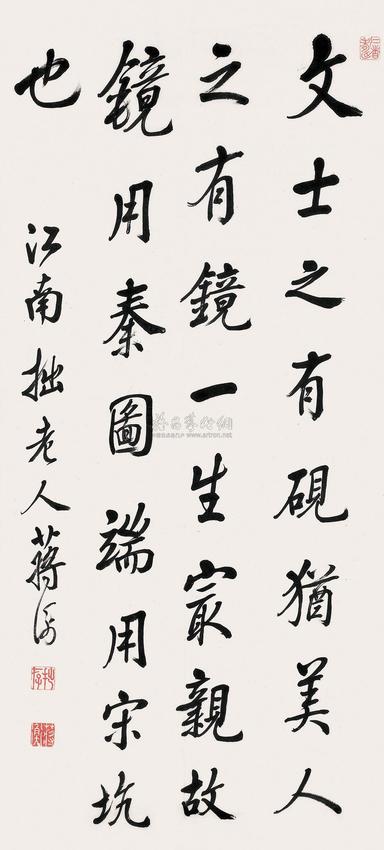 文士之有硯猶美人
之有鏡一生㝡親故
鏡用秦圖端用宋坑
也
江南拙老人蔣衡
www.artron.net